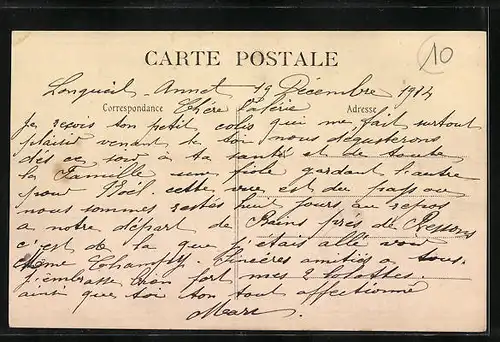 10
CARTE POSTALE
Longueil-Annel 19 Décembre 1914
Correspondance Adresse
Chère Valérie
Je reçois ton petit colis qui me fait surtout
plaisir venant de toi nous dégusterons
dès ce soir à ta santé et de toute
la famille une fiole gardant l'autre
pour Noël. cette vue est du pays ou
nous sommes restés huit jours au repos
a notre départ de Bains près de Ressons
c'est de la que j'étais allé voir
Mme Sincères amitiés a tous.
J'embrasse bien fort mes 2
ainsi que toi ton tout affectionné
Marc.